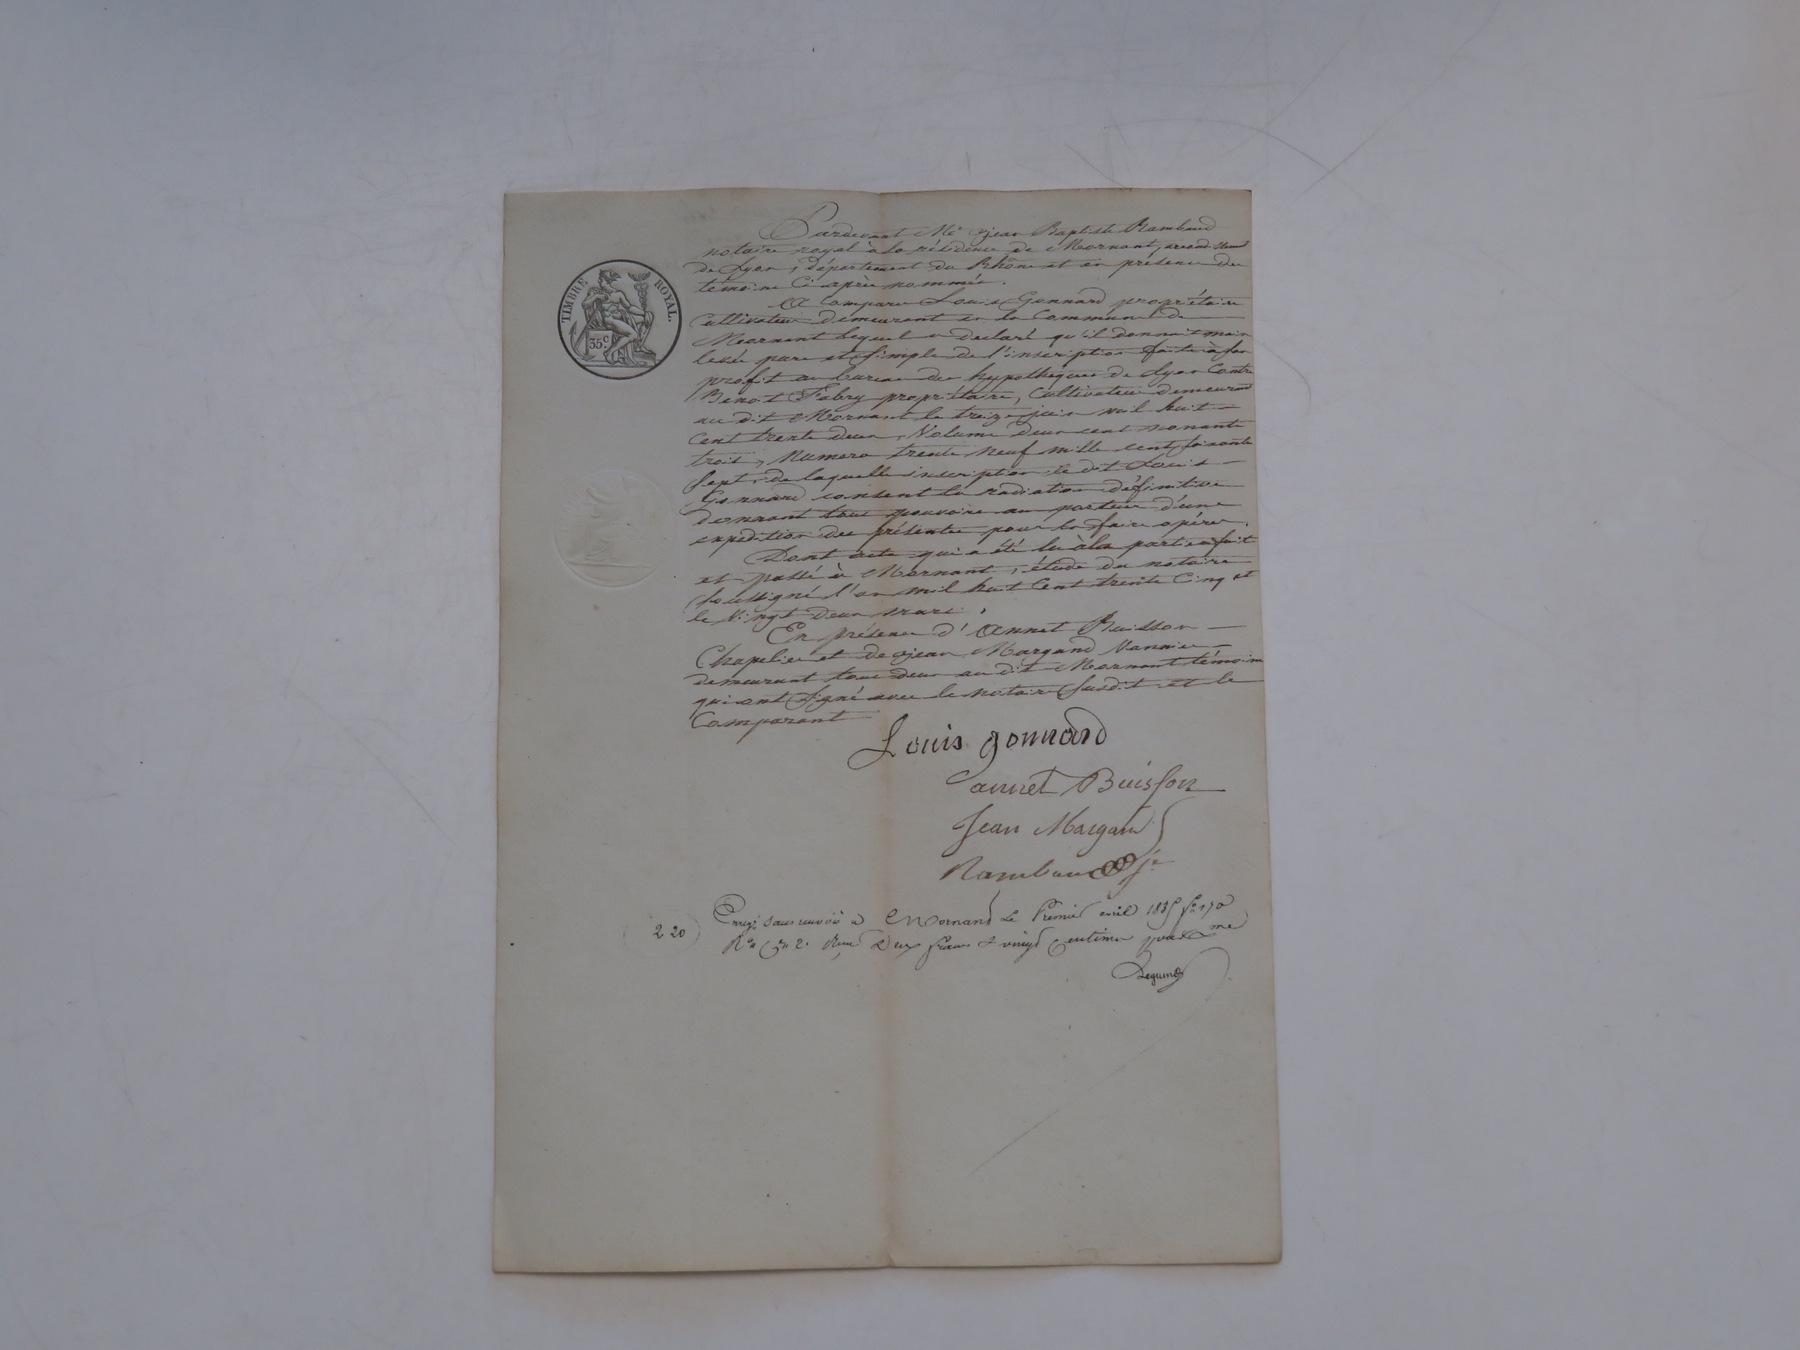 TIMBRE ROYAL.
35c.
Pardevant Me jean Baptiste Rambaud
notaire royal à la résidence de Mornant, arrond.
de Lyon, département du Rhône et en présence des
témoins Ci après nommés.
A Comparu Louis Gonnard propriétaire
Cultivateur demeurant en la Commune de
Mornant lequel a déclaré qu'il donnait main
levée pure et simple de l'inscription faite à son
profit au bureau des hypothèques de Lyon Contre
Benoit Fabry propriétaire, Cultivateur demeurant
au dit Mornant le treize juin mil huit
Cent trente deux, Volume deux cent nonante
trois, Numero trente neuf mille cent soixante
sept, de laquelle inscription le dit Louis
Gonnard consent la radiation définitive
donnant tout pouvoir au porteur d'une
expédition des présentes pour la faire opérer.
Dont acte qui a été lu à la partie fait
et passé à Mornant, étude du notaire
soussigné l'an mil huit Cent trente Cinq et
le vingt deux mars.
En présence d'Annet Buisson
Chapelier et de jean Margand Vannier
demeurant tous deux au dit Mornant témoins
qui ont signé avec le notaire susdit et le
Comparant
Louis gonnard
annet Buisson
Jean Margand
Rambaud
2 20
Enregé sans renvoi à Mornand le Premier avril 1835 fo 170
Ro Ce 2. Reçu Deux francs & vingt Centimes